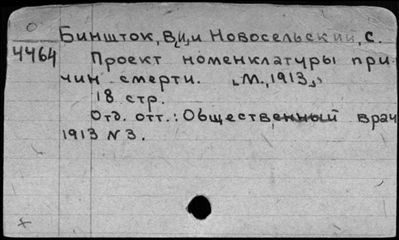 Биншток, В.И., и Новосельский, С.
4464
Проект номенклатуры при-
чин смерти. „М., 1913„
18 стр.
Отд. отт.: Общественный врач
1913 N 3.